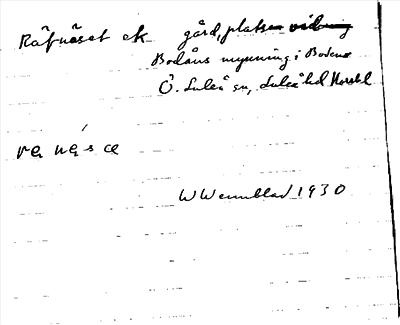 Räfnäset ek gård, platsen vid
Bodåns mynning i Boden
Ö. Luleå sn, Luleå hd Norrb l
W Wennblad 1930